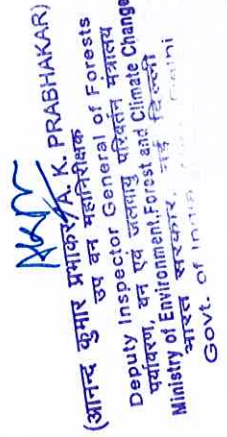 (आनन्द कुमार प्रभाकर/A. K. PRABHAKAR)
उप वन महानिरीक्षक
Deputy Inspector General of Forests
पर्यावरण, वन एवं जलवायु परिवर्तन मंत्रालय
Ministry of Environment, Forest and Climate Change
भारत सरकार, नई दिल्ली
Govt. of India Delhi